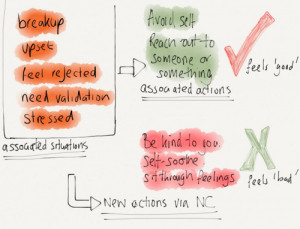 breakup
upset
feel rejected
need validation
stressed
associated situations
Avoid self
Reach out to
someone or
something
associated actions
feels 'good'
Be kind to you
Self-soothe
sit through feelings
feels 'bad'
New actions via NC